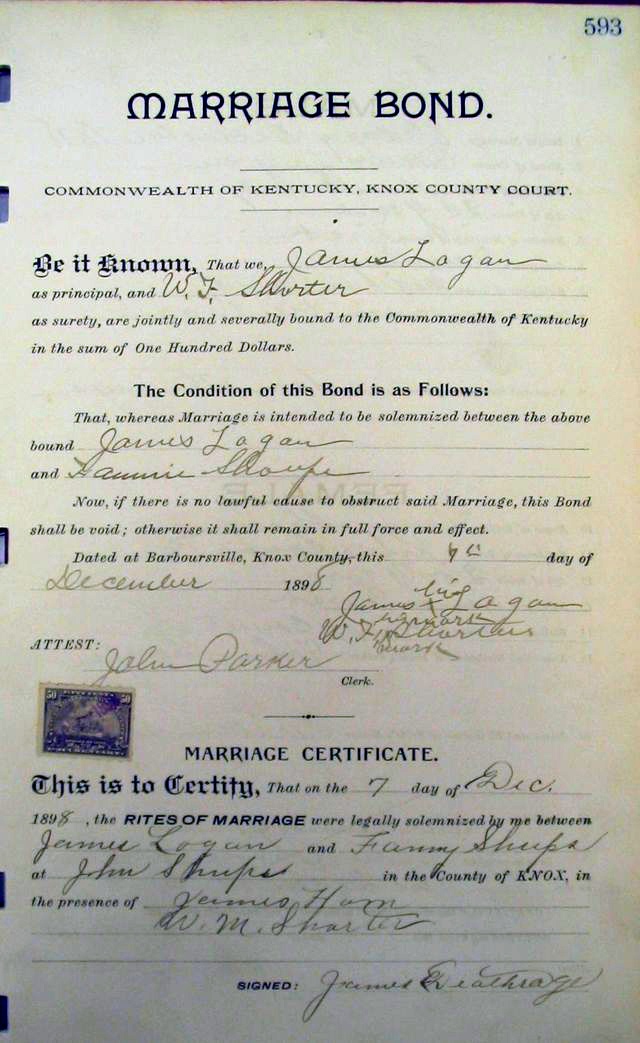 593
MARRIAGE BOND.
COMMONWEALTH OF KENTUCKY, KNOX COUNTY COURT.
Be it Known, That we, James Logan
as principal, and W. F. Shorter
as surety, are jointly and severally bound to the Commonwealth of Kentucky
in the sum of One Hundred Dollars.
The Condition of this Bond is as Follows:
That, whereas Marriage is intended to be solemnized between the above
bound James Logan
and Fannie Shoupe
Now, if there is no lawful cause to obstruct said Marriage, this Bond
shall be void; otherwise it shall remain in full force and effect.
Dated at Barboursville, Knox County, this 7th day of
December 1898
his
James x Logan
mark
W. F. Shorter
mark
ATTEST:
John Parker
Clerk.
50 50
MARRIAGE CERTIFICATE.
This is to Certify, That on the 7 day of Dec.
1898, the RITES OF MARRIAGE were legally solemnized by me between
James Logan and Fanny Shups
at John Shups in the County of KNOX, in
the presence of James Ham
W. M. Shorter
SIGNED: James Deathrage